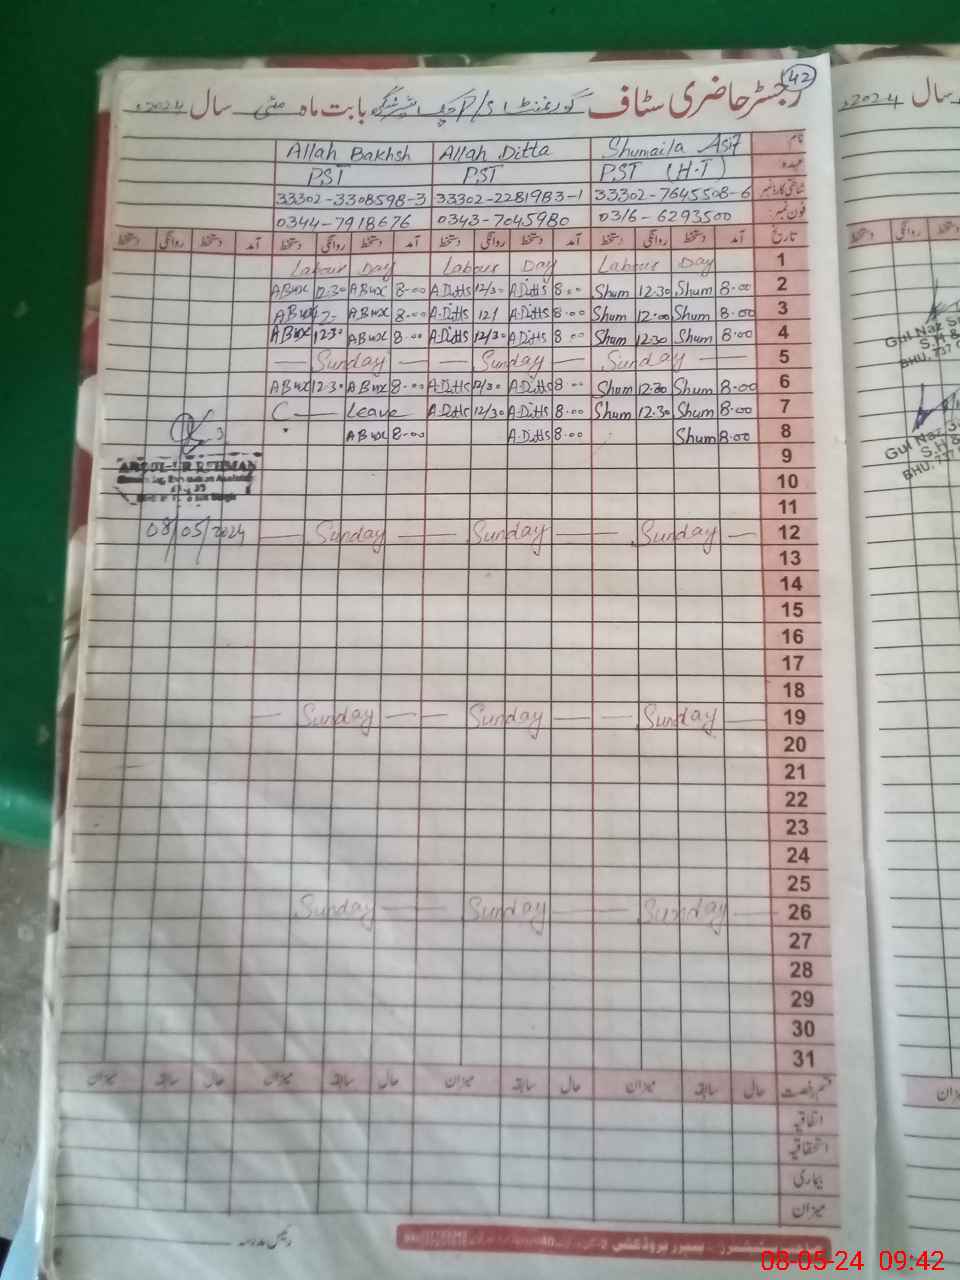 42
رجسٹر حاضری سٹاف گورنمنٹ P/S بابت ماہ مئی سال 2024ء
نام Shumaila Asif Allah Ditta Allah Bakhsh
عہدہ PST (H.T) PST PST
شناختی کارڈ نمبر 33302-7645508-6 33302-2281983-1 33302-3308598-3
فون نمبر: 0316-6293500 0343-7045980 0344-7918676
تاریخ آمد دستخط روانگی دستخط آمد دستخط روانگی دستخط آمد دستخط روانگی دستخط آمد دستخط روانگی دستخط
1 Labour Day Labour Day Labour Day
2 8.00 Shum 12.30 Shum 8.00 A.Ditts 12/30 A.Ditts 8.00 ABux 12.30 ABux
3 8.00 Shum 12.00 Shum 8.00 A.Ditts 12/ A.Ditts 8.00 ABux 12- ABux
4 8.00 Shum 12.30 Shum 8.00 A.Ditts 12/30 A.Ditts 8.00 ABux 12.30 ABux
5 Sunday Sunday Sunday
6 8.00 Shum 12.30 Shum 8.00 A.Ditts 12/30 A.Ditts 8.00 ABux 12.30 ABux
7 8.00 Shum 12.30 Shum 8.00 A.Ditts 12/30 A.Ditts C — Leave
8 8.00 Shum 8.00 A.Ditts 8.00 ABux
9
ABDUL-UR REHMAN
10
11
12 Sunday Sunday Sunday 08/05/2024
13
14
15
16
17
18
19 Sunday Sunday Sunday
20
21
22
23
24
25
26 Sunday Sunday Sunday
27
28
29
30
31
قسم رخصت حال سابقہ میزان حال سابقہ میزان حال سابقہ میزان حال سابقہ میزان
اتفاقیہ
استحقاقیہ
بیماری
میزان
رئیس مدرسہ
سال 2024ء
دستخط روانگی دستخط
Gul Naz
S.H &
BHU, 737
Gul Naz
S.H &
BHU, 737
میزان
08-05-24 09:42